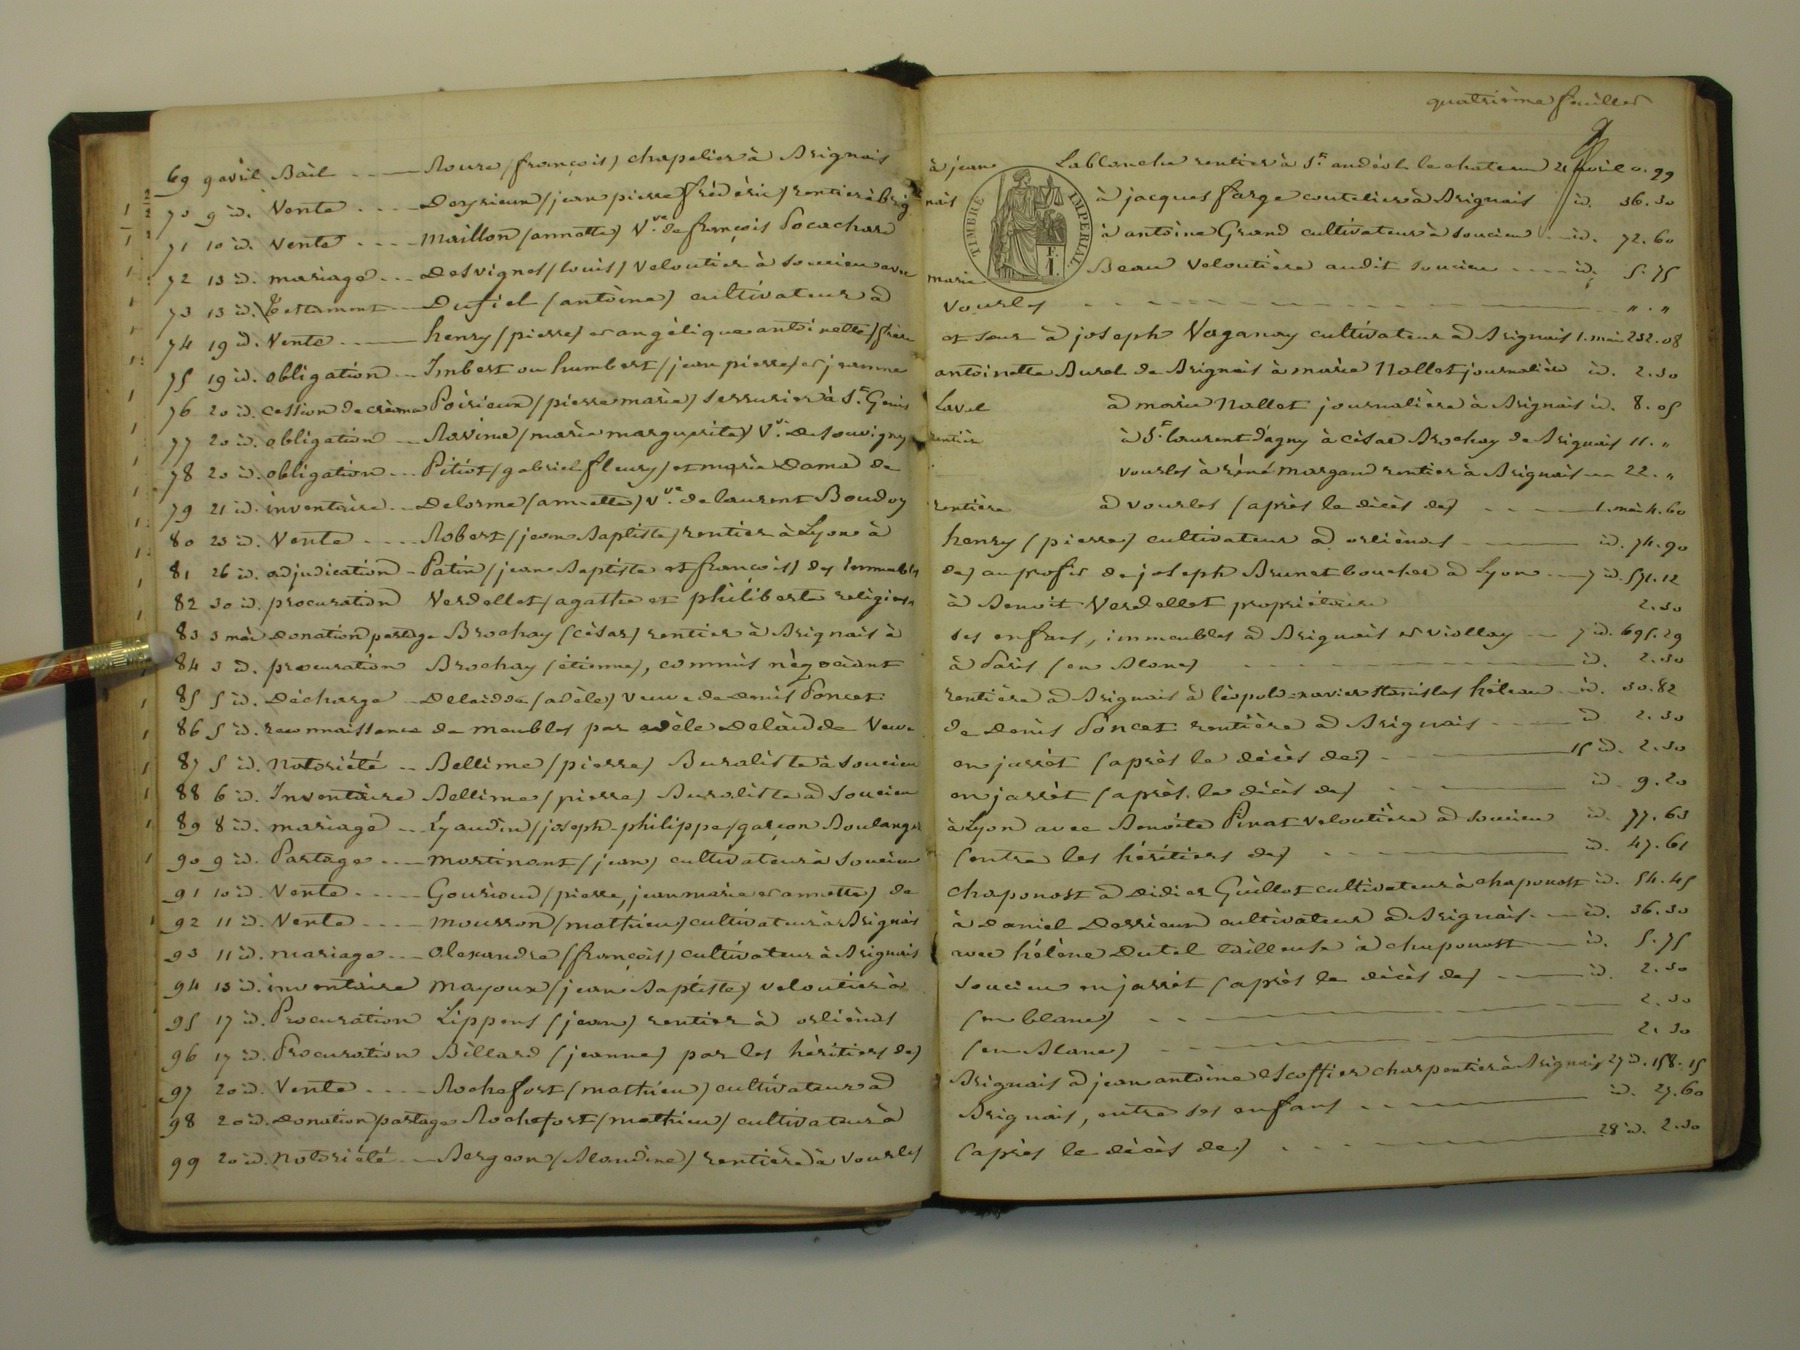 quatrième feuillet
69 9 avril Bail Roure (françois) chapelier à Brignais à jean Lablanche rentier à St. andéol le chateau 21 avril 0.99
70 9 id. Vente Deyrieux (jean pierre frédéric) rentier à Brignais à jacques farge coutelier à Brignais id. 36.30
71 10 id. Vente Maillon (annette) Vve. de françois Pocachard à antoine Grand cultivateur à Soucieu id. 72.60
72 13 id. mariage Desvignes (louis) veloutier à Soucieu avec marie Beau veloutière audit Soucieu id. 5.75
73 13 id. Testament Dufiel (antoine) cultivateur à Vourles " . "
74 19 id. Vente henry (pierre) et angélique antoinette) frère et sœur à joseph Vaganay cultivateur à Brignais 1. mai 232.08
75 19 id. obligation Imbert ou humbert (jean pierre) et jeanne antoinette Burel de Brignais à marie Nallet journalière id. 2.30
76 20 id. cession de créance Poirieux (pierre marie) serrurier à St. Genis Laval à marie Nallet journalière à Brignais id. 8.05
77 20 id. obligation Ravina (marie marguerite) Vve. de Souvigny rentière à St. laurent d'agny à césar Brochay de Brignais 11. "
78 20 id. obligation Pitiot (gabriel fleury) et marie Damad de vourles à réné margand rentier à Brignais 22. "
79 21 id. inventaire Delorme (annette) Vve. de laurent Boudoy rentière à vourles (après le décès de) 1. mai 4.60
80 23 id. Vente Robert (jean Baptiste) rentier à Lyon à henry (pierre) cultivateur à orliénas id. 74.90
81 26 id. adjudication Patin (jean Baptiste et françois) des immeubles des) au profit de joseph Brunet boucher à Lyon 7 id. 571.12
82 30 id. procuration Verdellet (agathe et philiberte religieuses à Benoit Verdellet propriétaire 2.30
83 3 mai Donation partage Brochay (césar) rentier à Brignais à ses enfans, immeubles à Brignais et violley 7 id. 695.29
84 3 id. procuration Brochay (étienne), commis négociant à Paris (en Blanc) id. 2.30
85 5 id. Décharge Delaidde (adèle) veuve de Denis Poncet rentière à Brignais à léopold-xavier stanislas héleau id. 30.82
86 5 id. reconnaissance de meubles par adèle Delaidde Veuve de Denis Poncet rentière à Brignais id 2.30
87 5 id. Notoriété Bellime (pierre) Buraliste à Soucieu en jarrêt (après le décès de) 15 id. 2.30
88 6 id. Inventaire Bellime (pierre) Buraliste à Soucieu en jarrêt (après le décès de) id. 9.20
89 8 id. mariage Eyaudin (joseph-philippe) garçon Boulanger à Lyon avec Benoite Pinat veloutière à Soucieu id. 77.63
90 9 id. Partage Martinant (jean) cultivateur à Soucieu (entre les héritiers de) id. 47.61
91 10 id. Vente Gouroud (pierre, jean marie et annette) de chaponost à Didier Guillot cultivateur à chaponost id. 54.45
92 11 id. Vente Mousson (mathieu) cultivateur à Brignais à Daniel Derrieux cultivateur à Brignais id. 36.30
93 11 id. mariage Alexandre (françois) cultivateur à Brignais avec hélène Dutel tailleuse à chaponost id. 5.75
94 13 id. inventaire Mayoux (jean Baptiste) veloutier à Soucieu en jarrêt (après le décès de) id. 2.30
95 17 id. Procuration Lippens (jean) rentier à orliénas (en blanc) 2.30
96 17 id. Procuration Billard (jeanne) par les héritiers de) (en Blanc) 2.30
97 20 id. Vente Rochefort (mathieu) cultivateur à Brignais à jean antoine Escoffier charpentier à Brignais 27 id. 158.15
98 20 id. Donation partage Rochefort (mathieu) cultivateur à Brignais, entre ses enfans id. 27.60
99 20 id. Notoriété Bergeon (Blandine) rentière à Vourles (après le décès de) 28 id. 2.30
TIMBRE IMPERIAL